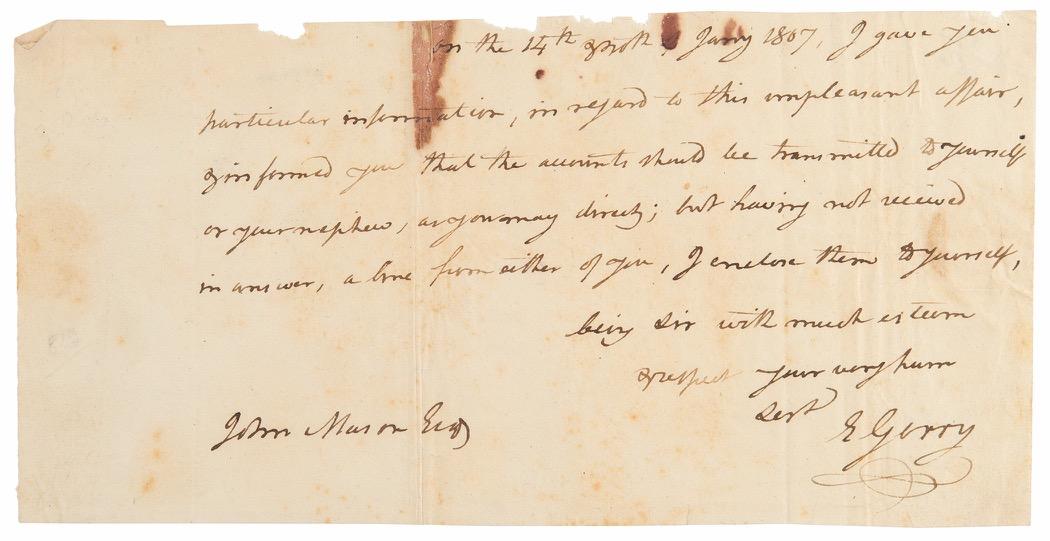 on the 14th & 20th of Jany 1807, I gave you
particular information, in regard to this unpleasant affair,
& informed you that the accounts should be transmitted to yourself
or your nephew, as you may direct; but having not received
in answer, a line from either of you, I enclose them to yourself,
being Sir with much esteem
& respect your very hum
Sert
E Gerry
John Mason Esq